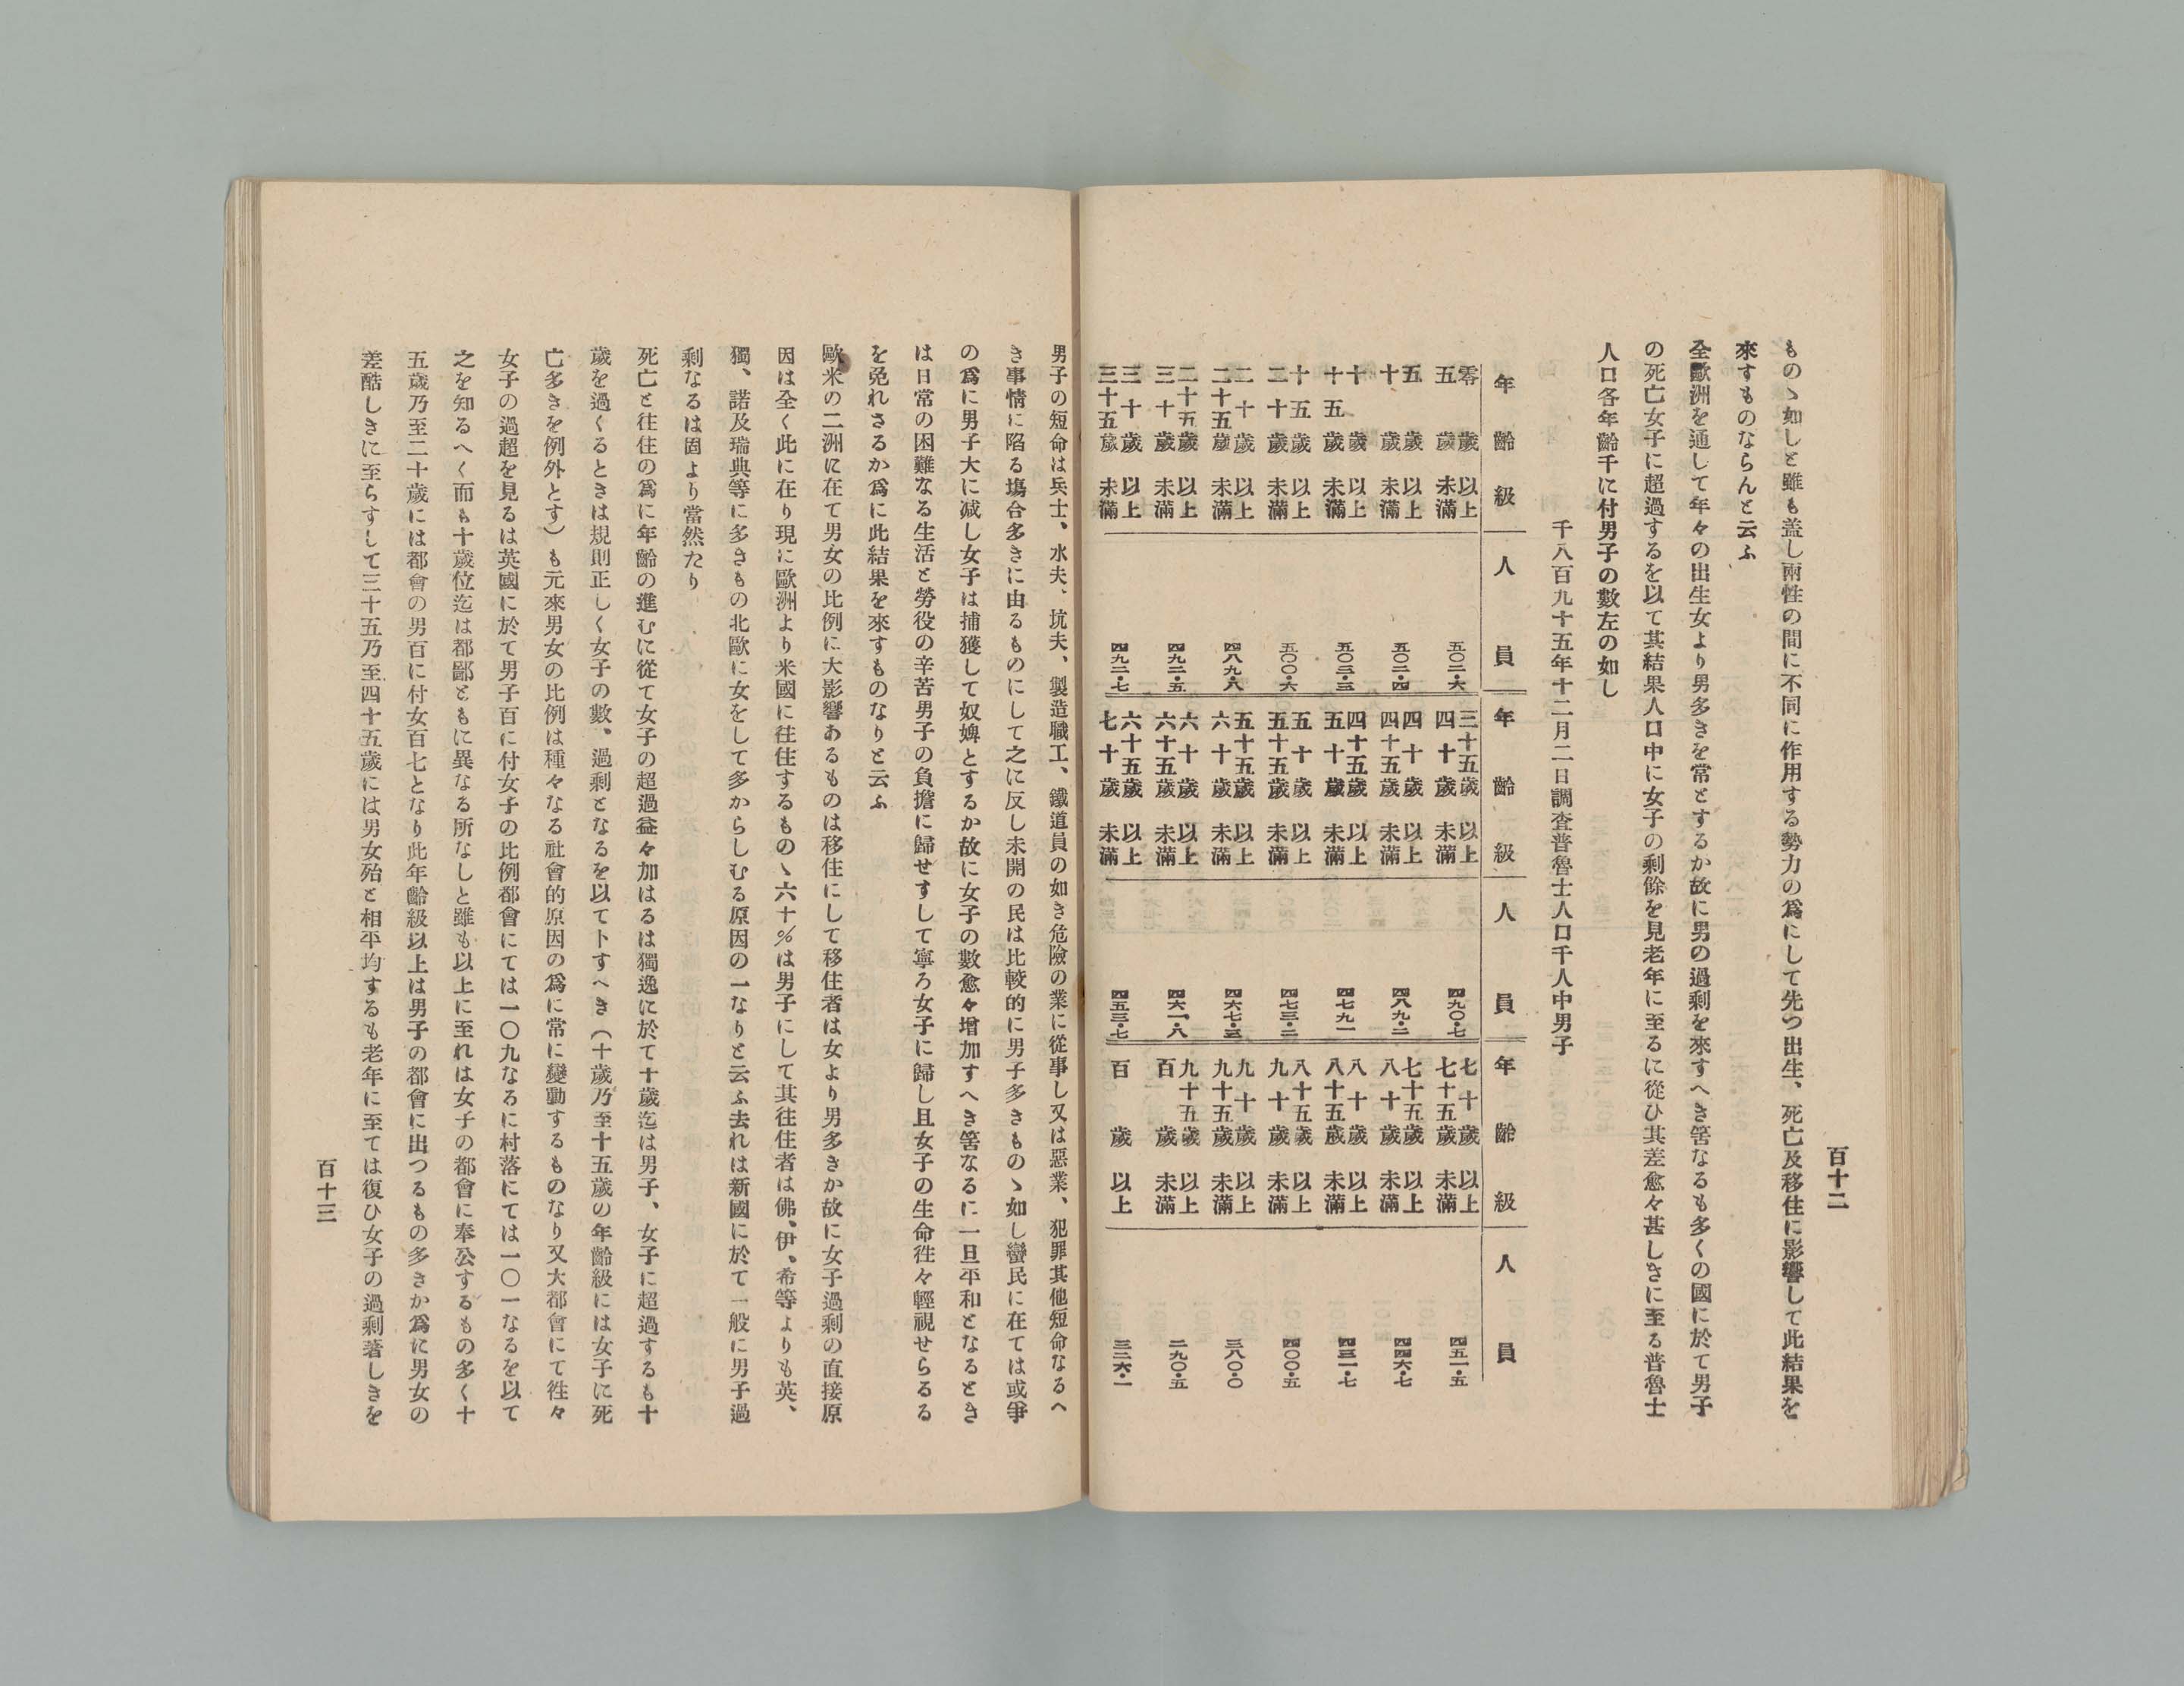 百十二
ものゝ如しと雖も盖し兩性の間に不同に作用する勢力の爲にして先つ出生、死亡及移住に影響して此結果を
來すものならんと云ふ
全歐洲を通して年々の出生女より男多きを常とするか故に男の過剩を來すへき筈なるも多くの國に於て男子
の死亡女子に超過するを以て其結果人口中に女子の剩餘を見老年に至るに從ひ其差愈々甚しきに至る普魯士
人口各年齡千に付男子の數左の如し
千八百九十五年十二月二日調査普魯士人口千人中男子
年齡級 人員 年齡級 人員 年齡級 人員
零歲以上五歲未滿 五〇二・六 三十五歲以上四十歲未滿 四九〇・七 七十歲以上七十五歲未滿 四五一・五
五歲以上十歲未滿 五〇二・四 四十歲以上四十五歲未滿 四八九・二 七十五歲以上八十歲未滿 四四六・七
十歲以上十五歲未滿 五〇三・三 四十五歲以上五十歲未滿 四七九一 八十歲以上八十五歲未滿 四三一・七
十五歲以上二十歲未滿 五〇〇・六 五十歲以上五十五歲未滿 四七三・二 八十五歲以上九十歲未滿 四〇〇・五
二十歲以上二十五歲未滿 四八九・八 五十五歲以上六十歲未滿 四六七・三 九十歲以上九十五歲未滿 三八〇・〇
二十五歲以上三十歲未滿 四九二・五 六十歲以上六十五歲未滿 四六一・八 九十五歲以上百歲未滿 二九〇・五
三十歲以上三十五歲未滿 四九二・七 六十五歲以上七十歲未滿 四五三・七 百歲以上 三二六・一
男子の短命は兵士、水夫、坑夫、製造職工、鐵道員の如き危險の業に從事し又は惡業、犯罪其他短命なるへ
き事情に陷る塲合多きに由るものにして之に反し未開の民は比較的に男子多きものゝ如し蠻民に在ては或爭
の爲に男子大に減し女子は捕獲して奴婢とするか故に女子の數愈々增加すへき筈なるに一旦平和となるとき
は日常の困難なる生活と勞役の辛苦男子の負擔に歸せすして寧ろ女子に歸し且女子の生命往々輕視せらるる
を免れさるか爲に此結果を來すものなりと云ふ
歐米の二洲に在て男女の比例に大影響あるものは移住にして移住者は女より男多きか故に女子過剩の直接原
因は全く此に在り現に歐洲より米國に往住するものゝ六十%は男子にして其往住者は佛、伊、希等よりも英、
獨、諾及瑞典等に多きもの北歐に女をして多からしむる原因の一なりと云ふ去れは新國に於て一般に男子過
剩なるは固より當然たり
死亡と往住の爲に年齡の進むに從て女子の超過益々加はるは獨逸に於て十歲迄は男子、女子に超過するも十
歲を過くるときは規則正しく女子の數、過剩となるを以て卜すへき（十歲乃至十五歲の年齡級には女子に死
亡多きを例外とす）も元來男女の比例は種々なる社會的原因の爲に常に變動するものなり又大都會にて往々
女子の過超を見るは英國に於て男子百に付女子の比例都會にては一〇九なるに村落にては一〇一なるを以て
之を知るへく而も十歲位迄は都鄙ともに異なる所なしと雖も以上に至れは女子の都會に奉公するもの多く十
五歲乃至二十歲には都會の男百に付女百七となり此年齡級以上は男子の都會に出つるもの多きか爲に男女の
差酷しきに至らすして三十五乃至四十五歲には男女殆と相平均するも老年に至ては復ひ女子の過剩著しきを
百十三